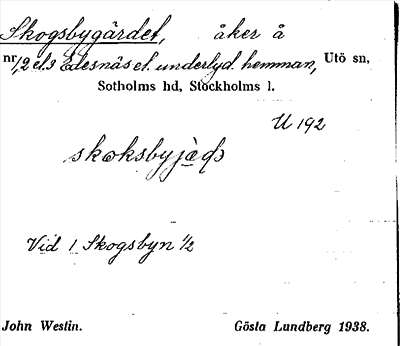 Skogsbygärdet, åker å
nr 1,2 el. 3 Edesnäs el. underlyd. hemman, Utö sn,
Sotholms hd, Stockholms l.
U 192
Vid 1 Skogsbyn 1/2
John Westin. Gösta Lundberg 1938.